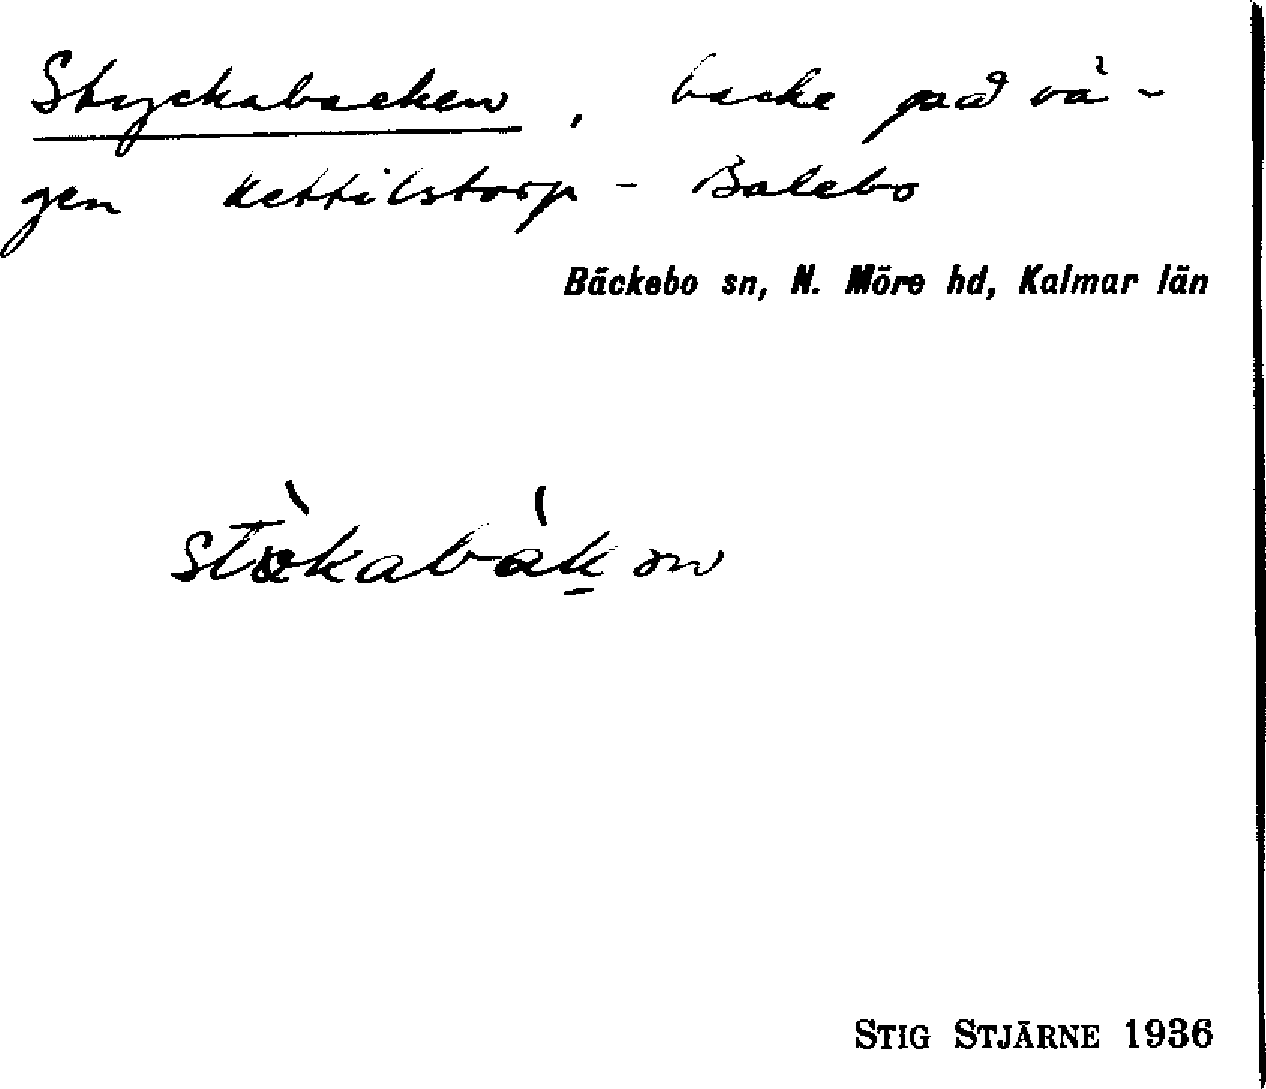 Styckabacken, backe på vä-
gen Kettilstorp - Balebo
Bäckebo sn, N. Möre hd, Kalmar län
STIG STJÄRNE 1936